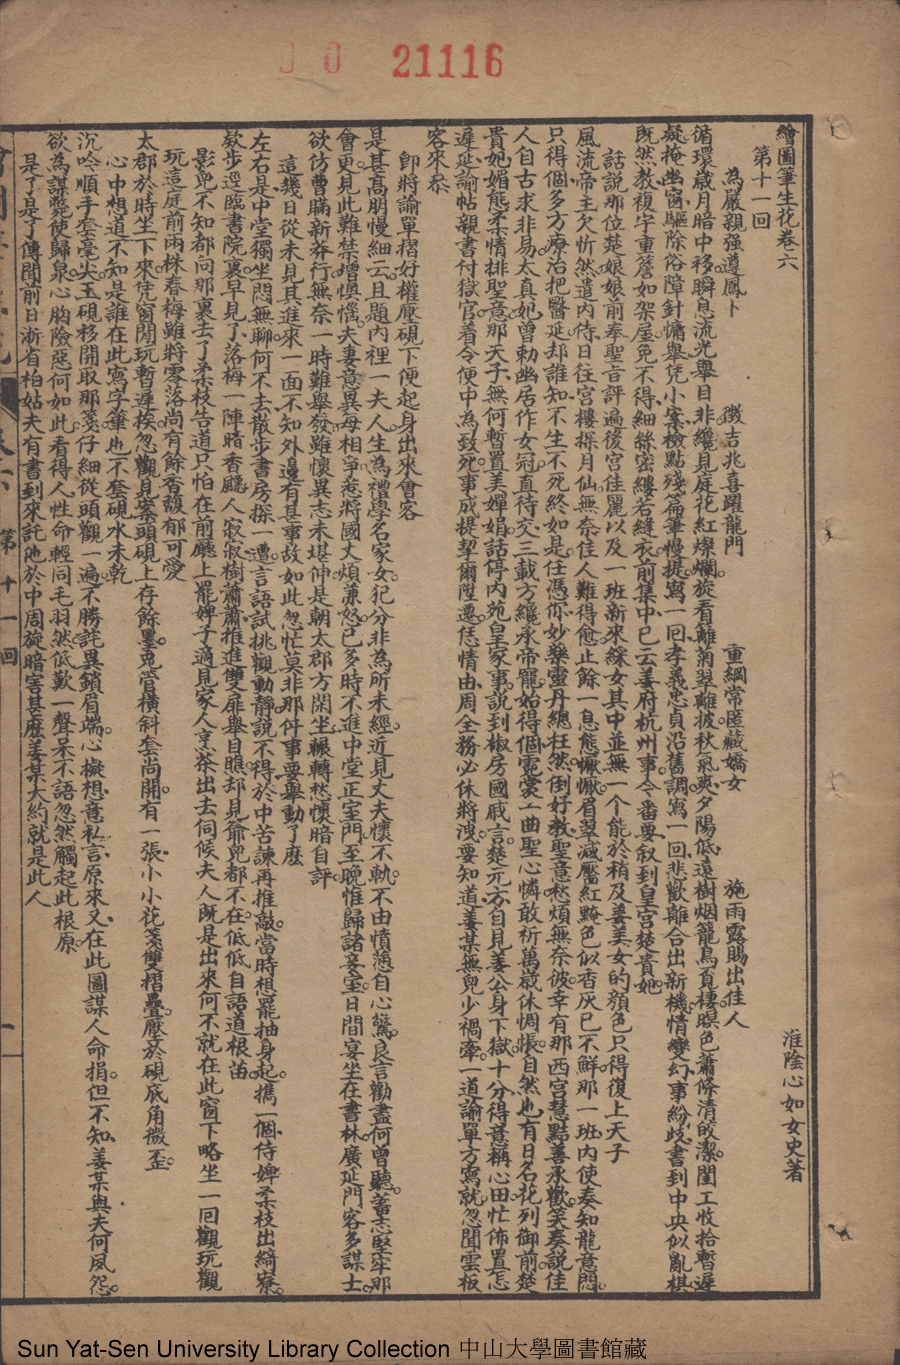 21116
繪圖筆生花卷六
淮陰心如女史著
第十一回
為嚴親強遵鳳卜 徴吉兆喜躍龍門 重綱常匿藏嬌女 施雨露賜出佳人
循環歲月暗中移。瞬息流光舉目非。纔見庭花紅燦爛。旋看籬菊翠離披。秋氣爽。夕陽低。遠樹烟籠鳥覓棲。暝色蕭條清皎潔。閨工收拾暫遲
疑。掩幽窗。驅除俗障針慵舉。凭小案。檢點殘篇筆慢提。寫一回。孝義忠貞沿舊調。寫一回。悲歡離合出新機。情變幻。事紛歧。書到中央似亂棋。
既然教複字重詹如架屋。免不得細絲密縷若縫衣。前集中已云姜府杭州事。今番要叙到皇宮楚貴妃。
話說那位楚娘娘前奉聖言評遍後宮佳麗以及一班新來綵女其中並無一个能於稍及姜美女的顏色只得復上天子
風流帝主欠忻然。遣內侍。日往宮樓探月仙。無奈佳人難得愈。止餘一息態懨懨。眉翠減。靨紅黯。色似杳灰已不鮮。那一班。內使奏知龍意悶。
只得個。多方療治把醫延。却誰知。不生不死終如是。任憑你。妙藥靈丹總枉然。倒好教。聖意愁煩無奈彼。幸有那。西宮慧黠善承歡。笑奏說。佳
人自古求非易。太真妃。曾勅幽居作女冠。直待交。三載方纔承帝寵。始得個。霓裳一曲聖心憐。敢祈萬歲休惆悵。自然也。有日名花列御前。楚
貴妃。媚態柔情排聖意。那天子。無何暫置美嬋娟。話停內苑皇家事。說到椒房國戚言。楚元方。自見姜公身下獄。十分得意稱心田。忙佈置。怎
遲延。諭帖親書付獄官。着令便中為致死。事成提挈爾陞遷。恁情由。周全務必休將洩。要知道。姜某無兒少禍牽。一道諭單方寫就。忽聞雲板
客來叅
即將諭單摺好權壓硯下便起身出來會客
是甚髙朋慢細云。且題內裡一夫人。生為禮學名家女。犯分非為所未經。近見丈夫懷不軌。不由憤懣自心驚。良言勸盡何曾聽。蓄志堅牢那
會更。見此難禁增惧慌。夫妻意異每相爭。惹將國丈煩蕪怒。已多時。不進中堂正室門。至晚惟歸諸妾室。日間宴坐在書林。廣延門客多謀士。
欲仿曹瞞新莽行。無奈一時難舉發。雖懷異志未堪伸。是朝太郡方閑坐。輾轉愁懷暗自評。
這幾日從未見其進來一面不知外邊有甚事故如此忽忙莫非那件事要舉動了麽
左右是。中堂獨坐悶無聊。何不去。散步書房探一遭。言語試挑觀動靜。說不得。於中苦諫再推敲。當時想罷抽身起。攜一個。侍婢柔枝出綺寮。
欵步逕臨書院裏。早見了。落梅一陣暗香飄。人寂寂。樹蕭蕭。推進雙扉舉目瞧。却見爺兒都不在。低低自語道根苗
影兒不知都向那裏去了柔枝告道只怕在前廳上罷婢子適見家人烹茶出去伺候夫人既是出來何不就在此窗下略坐一回觀玩觀
玩這庭前兩株春梅雖將零落尚有餘香馥郁可愛
太郡於時坐下來。凭窗閒玩暫遲挨。忽觀見。案頭硯上存餘墨。兎管橫斜套尚開。有一張。小小花箋雙摺疊。壓於硯底角微歪。
心中想道不知是誰在此寫字筆也不套硯水未乾
沉吟順手套毫尖。玉硯移開取那箋。仔細從頭觀一遍。不勝詫異鎖眉端。心擬想。意私言。原來又在此圖謀人命捐。但不知。姜某與夫何夙怨。
欲為謀斃使歸泉。心胸險惡何如此。看得人。性命輕同毛羽然。低歎一聲呆不語。忽然觸起此根原。
是了是了傳聞前日浙省柏姑夫有書到來託他於中周旋暗害甚麽姜某大約就是此人
第十一回
一
Sun Yat-Sen University Library Collection 中山大學圖書館藏